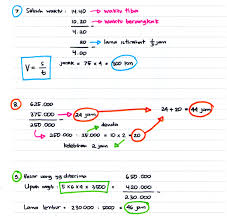 7 Selisih waktu : 14.40 → waktu tiba
10.20 → waktu berangkat
4.20
20 → lama istirahat 1/3 jam
4.00
V = s/t jarak = 75 x 4 = 300 km
8 625.000
375.000 → 24 jam
250.000
24 + 20 = 44 jam
denda
250.000 : 25.000 = 10 x 2 = 20
kelebihan 2 jam
9 Besar uang yg diterima 650.000
Upah wajib : 5 x 6 x 4 x 3500 = 420.000
230.000
Lama lembur = 230.000 : 5000 = 46 jam